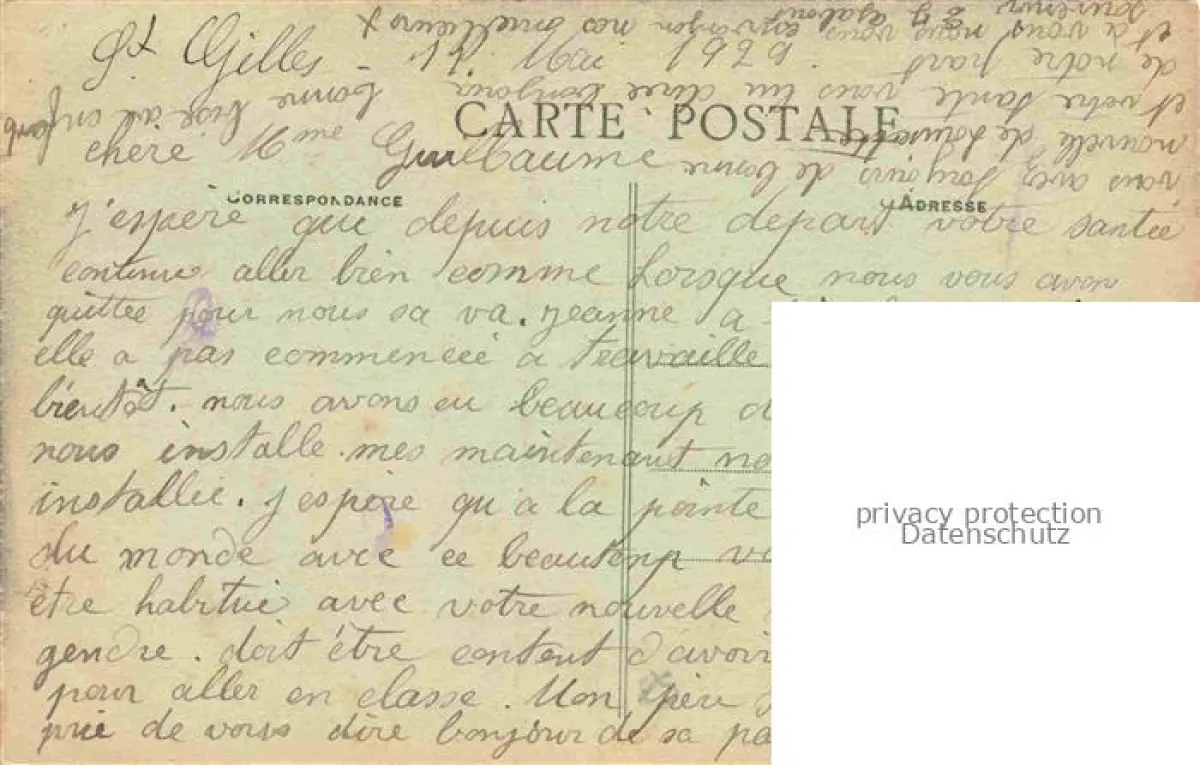 St Gilles - 17 Mai 1926.
CARTE POSTALE
chère Mme Guillaume
CORRESPONDANCE
ADRESSE
J'espère que depuis notre depart votre santée
continue aller bien comme Lorsque nous vous avon
quittee pour nous sa va. Jeanne a
elle a pas commencée a travaille
bientôt. nous avons eu beaucoup d
nous installe. mes maintenant no
installée. J espère qu'a la pointe
du monde avec ce beautemp v
être habituè avec votre nouvelle
gendre. doit être content d'avoir
pour aller en classe. Mon père
prie de vous dire bonjour de sa pa
vous avez toujours de bonne
nouvelle de
et votre santé vous un bonjour bonne bise au enfant
de notre part
et a vous nous vous envoyon nos meilleurs
souvenir
privacy protection
Datenschutz